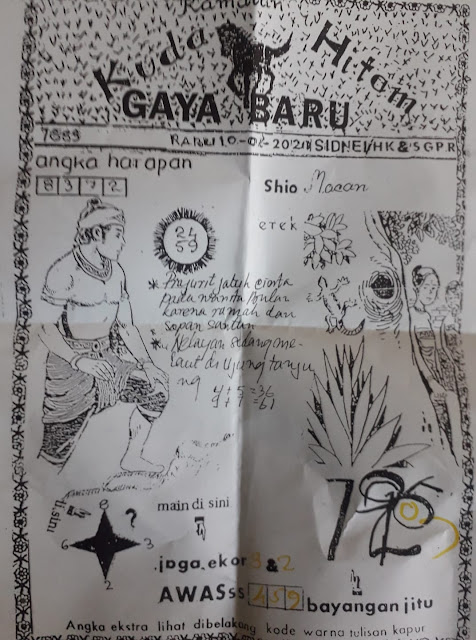 Ramalan
Kuda Hitam
GAYA BARU
RABU 10-06-2020 SIDNEI/HK & SGPR
angka harapan
8372
Shio Macan
24
59
erek
* Prajurit jatuh cinta
karena ramah dan
sopan santun
* Nelayan sedang me-
laut di Ujung tanju
ng
8
?
6
3
2
main di sini
jaga ekor 3 & 2
AWASss 459 bayangan jitu
Angka ekstra lihat dibelakang kode warna tulisan kapur